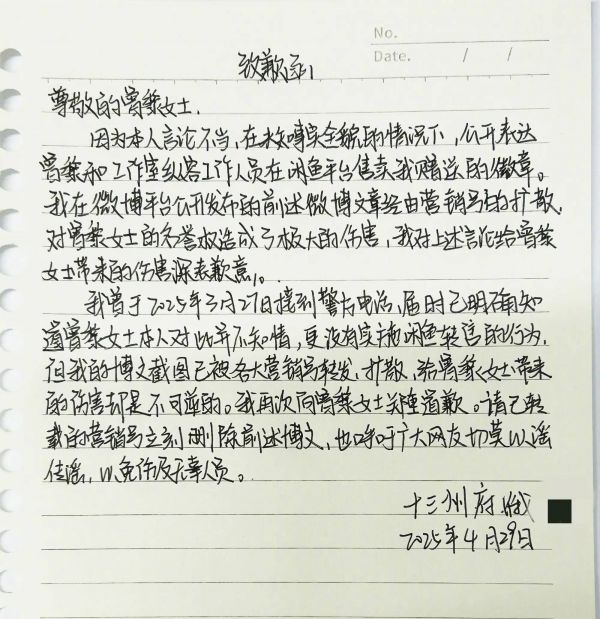 No.
Date. / /
致歉函
尊敬的曾黎女士.
因为本人言论不当,在未知事实全貌的情况下,公开表达
曾黎和工作室纵容工作人员在闲鱼平台售卖我赠送的徽章。
我在微博平台公开发布的前述微博文章经由营销号的扩散,
对曾黎女士的名誉权造成了极大的伤害,我对上述言论给曾黎
女士带来的伤害深表歉意。
我曾于2025年3月27日接到警方电话,届时已明确知
道曾黎女士本人对此并不知情,更没有实施闲鱼转售的行为,
但我的博文截图已被各大营销号转发,扩散,给曾黎女士带来
的伤害却是不可逆的。我再次向曾黎女士郑重道歉。请已转
载的营销号立刻删除前述博文,也呼吁广大网友切莫以谣
传谣,以免涉及无辜人员。
十三州府
2025年4月29日